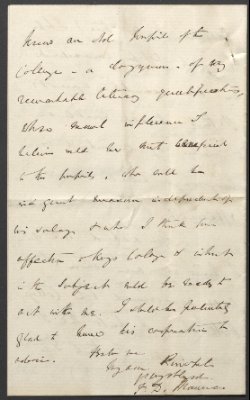 know an old Pupil of the
College - a clergyman - of very
remarkable literary qualifications,
whose moral influence I
believe would be most beneficial
to the pupils, who would be
in great measure independent of
his salary & who I think from
affection to Kings College & interest
in the subject would be ready to
act with me. I should be particularly
glad to have his cooperation &
advice.
Believe me
my dear Principal
yours
F. D. Maurice